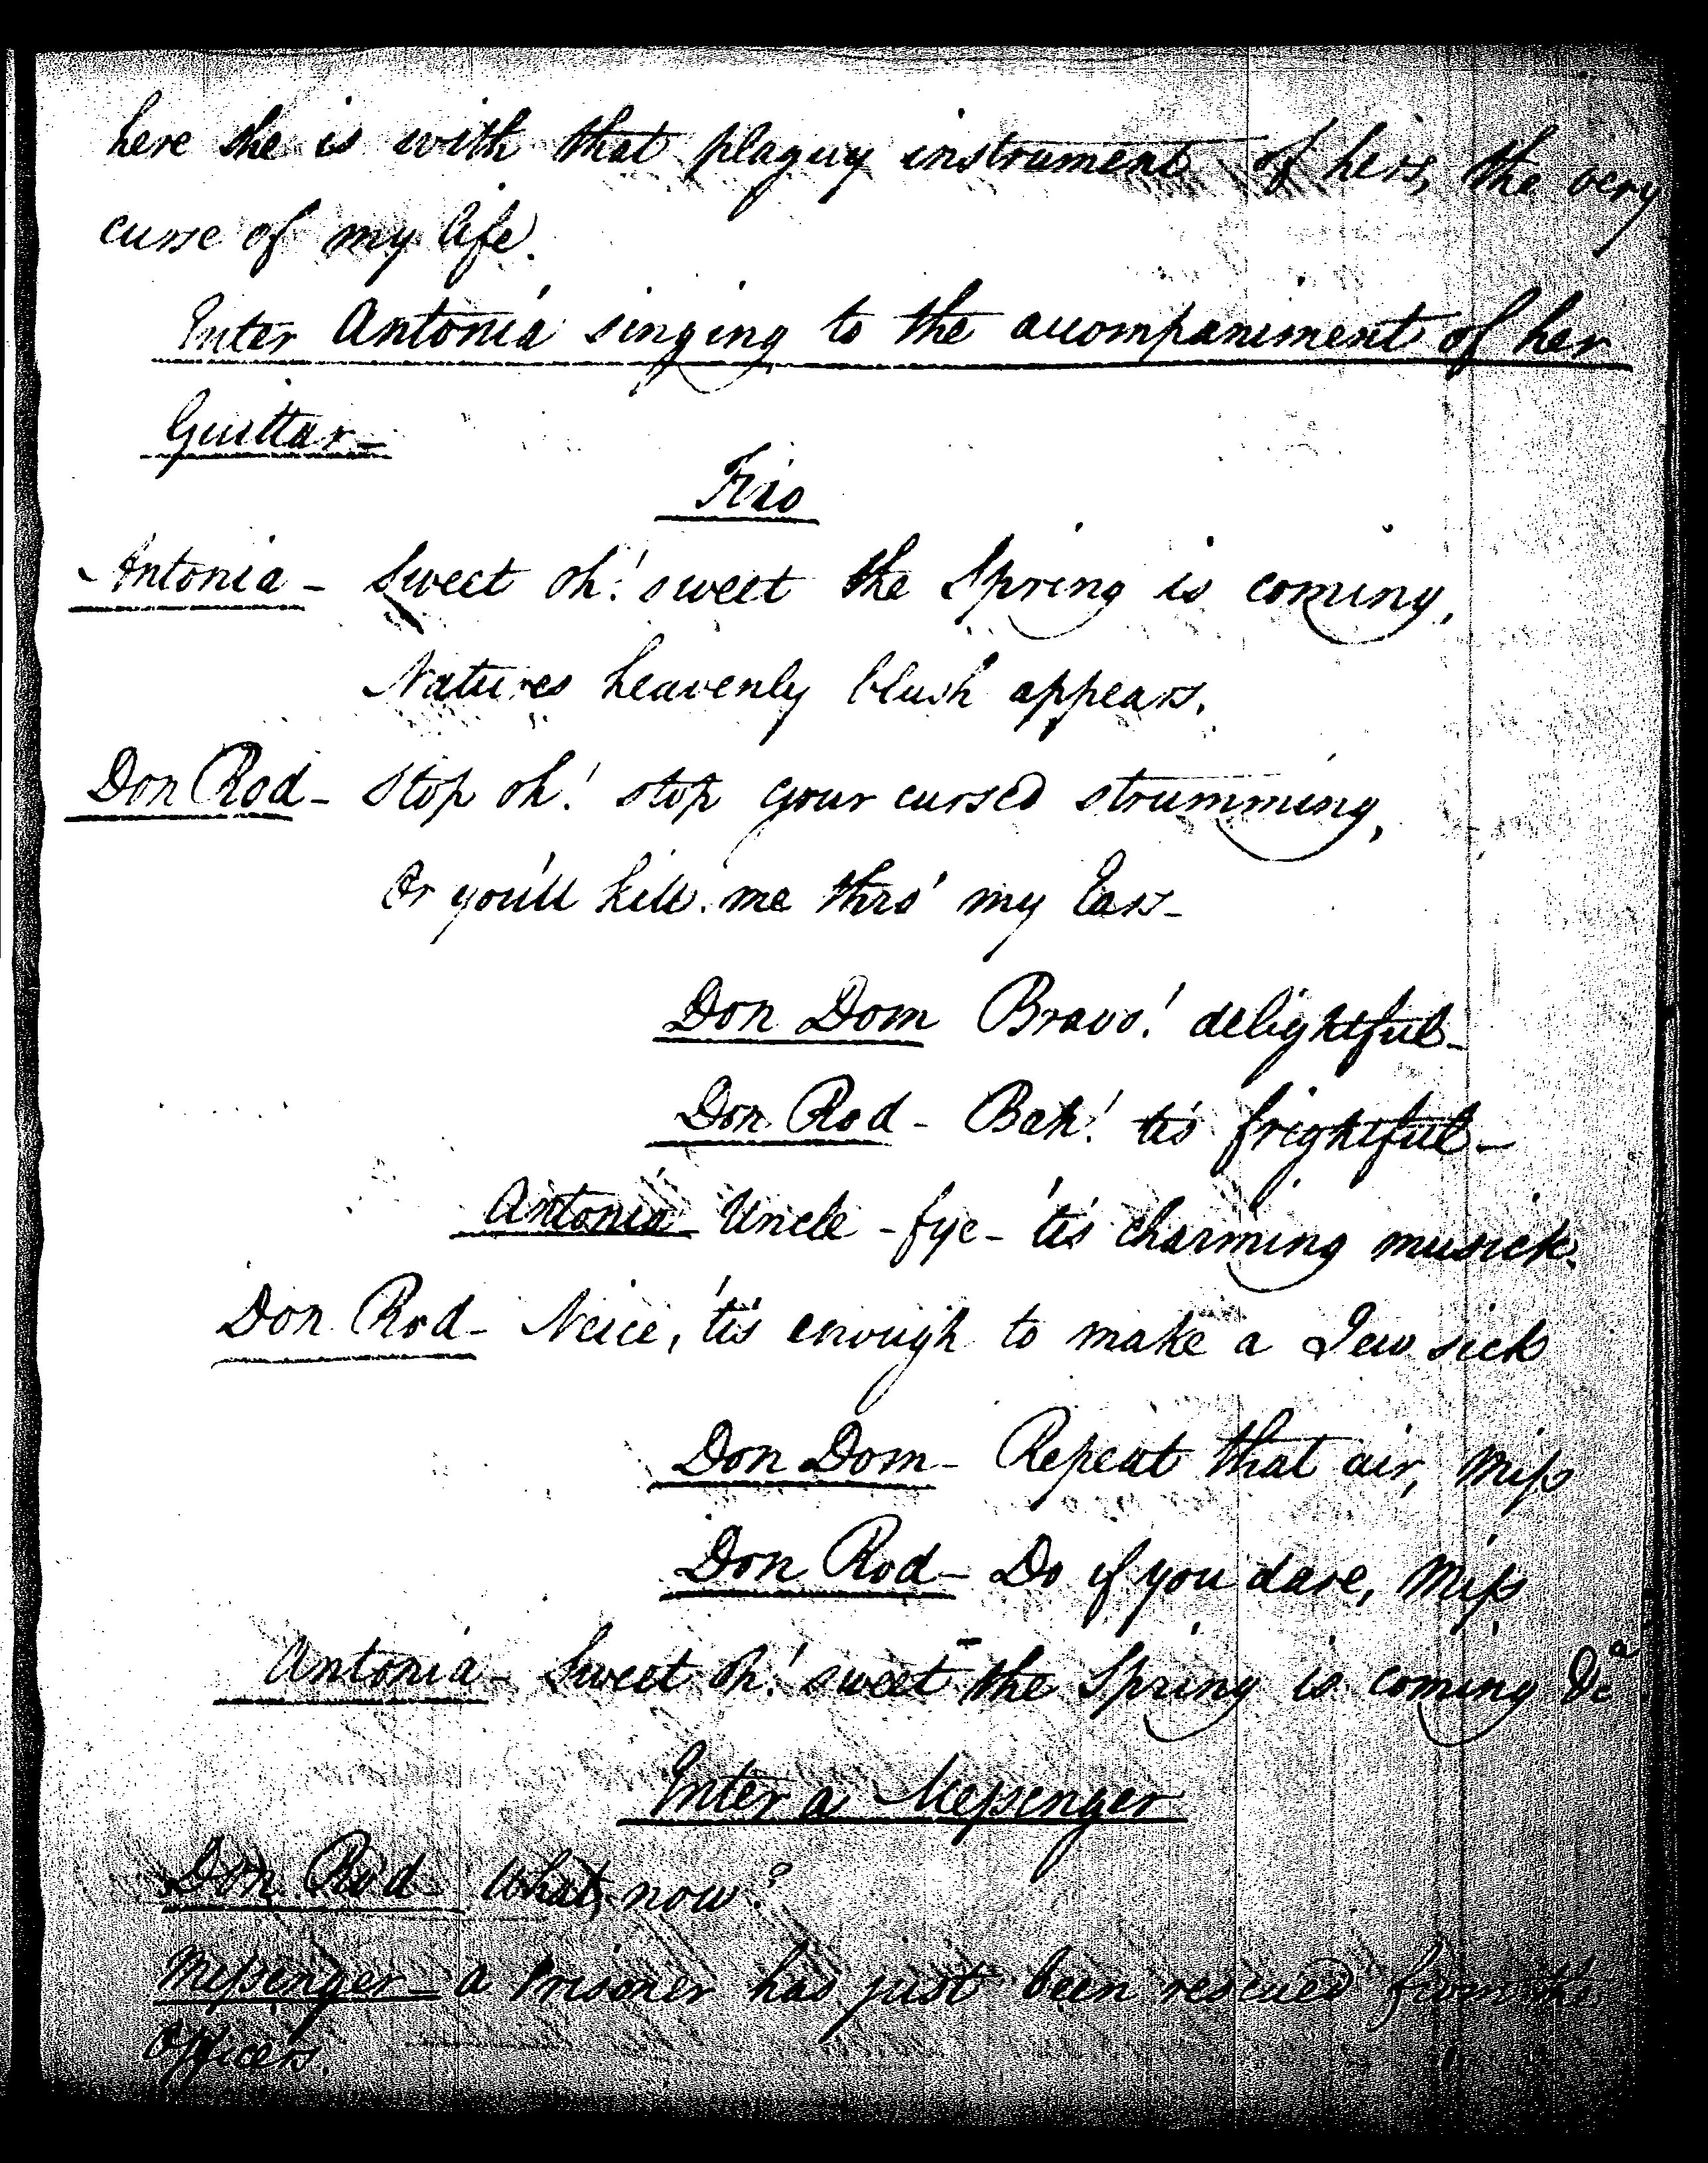 here she is with that plaguy instrument of hers, the very
curse of my life.
Enter Antonia singing to the accompaniment of her
Guittar—
Trio
Antonia — Sweet oh! sweet the Spring is coming,
Natures heavenly blush appears.
Don Rod — Stop oh! stop your cursed strumming,
Or you'll kill me thro' my Ears —
Don Dom Bravo! delightful —
Don Rod — Bah! 'tis frightful —
Antonia — Uncle — fye — 'tis charming musick.
Don Rod — Neice, 'tis enough to make a Jew sick
Don Dom — Repeat that air, Miss
Don Rod — Do if you dare, Miss
Antonia — Sweet oh! sweet the Spring is coming &ca
Enter a Messenger
Don Rod — What now?
Messenger — a Prisoner has just been rescued from the
Officers.